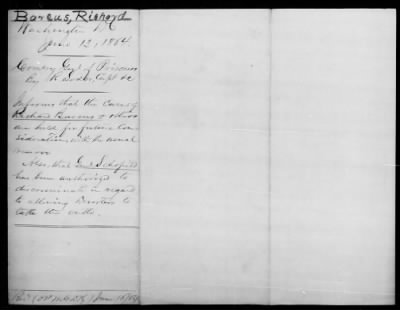 Barcus, Richard
Washington DC
June 12, 1864.
Comsy Genl of Prisoners
By Capt &c
Informs that the cases of
Richard Barcus & others
are held for future con
sideration, with the usual
Also, that Genl Schofield
has been authorized to
discriminate in regard
to allowing Deserters to
take the oath.
June 16/64